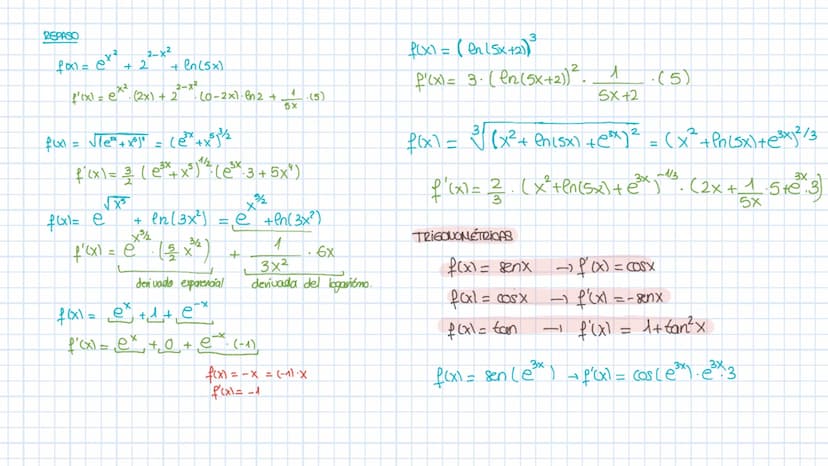 REPASO
f(x) = e^{x^2} + 2^{2-x^2} + ln(5x)
f'(x) = e^{x^2}·(2x) + 2^{2-x^2}·(0-2x)·ln2 + \frac{1}{5x}·(5)
f(x) = \sqrt{(e^{3x}+x^5)^3} = (e^{3x}+x^5)^{3/2}
f'(x) = \frac{3}{2}(e^{3x}+x^5)^{1/2}·(e^{3x}·3+5x^4)
f(x) = e^{\sqrt{x^5}} + ln(3x^2) = e^{x^{5/2}} + ln(3x^2)
f'(x) = e^{x^{5/2}}·(\frac{5}{2}x^{3/2}) + \frac{1}{3x^2}·6x
derivada exponencial derivada del logaritmo.
f(x) = e^x + 1 + e^{-x}
f'(x) = e^x + 0 + e^{-x}·(-1)
f(x) = -x = (-1)·x
f'(x) = -1
f(x) = (ln(5x+2))^3
f'(x) = 3·(ln(5x+2))^2·\frac{1}{5x+2}·(5)
f(x) = \sqrt[3]{(x^2+ln(5x)+e^{3x})^2} = (x^2+ln(5x)+e^{3x})^{2/3}
f'(x) = \frac{2}{3}·(x^2+ln(5x)+e^{3x})^{-1/3}·(2x+\frac{1}{5x}·5+e^{3x}·3)
TRIGONOMÉTRICAS
f(x) = senx → f'(x) = cosx
f(x) = cosx → f'(x) = -senx
f(x) = tan → f'(x) = 1+tan^2x
f(x) = sen(e^{3x}) → f'(x) = cos(e^{3x})·e^{3x}·3